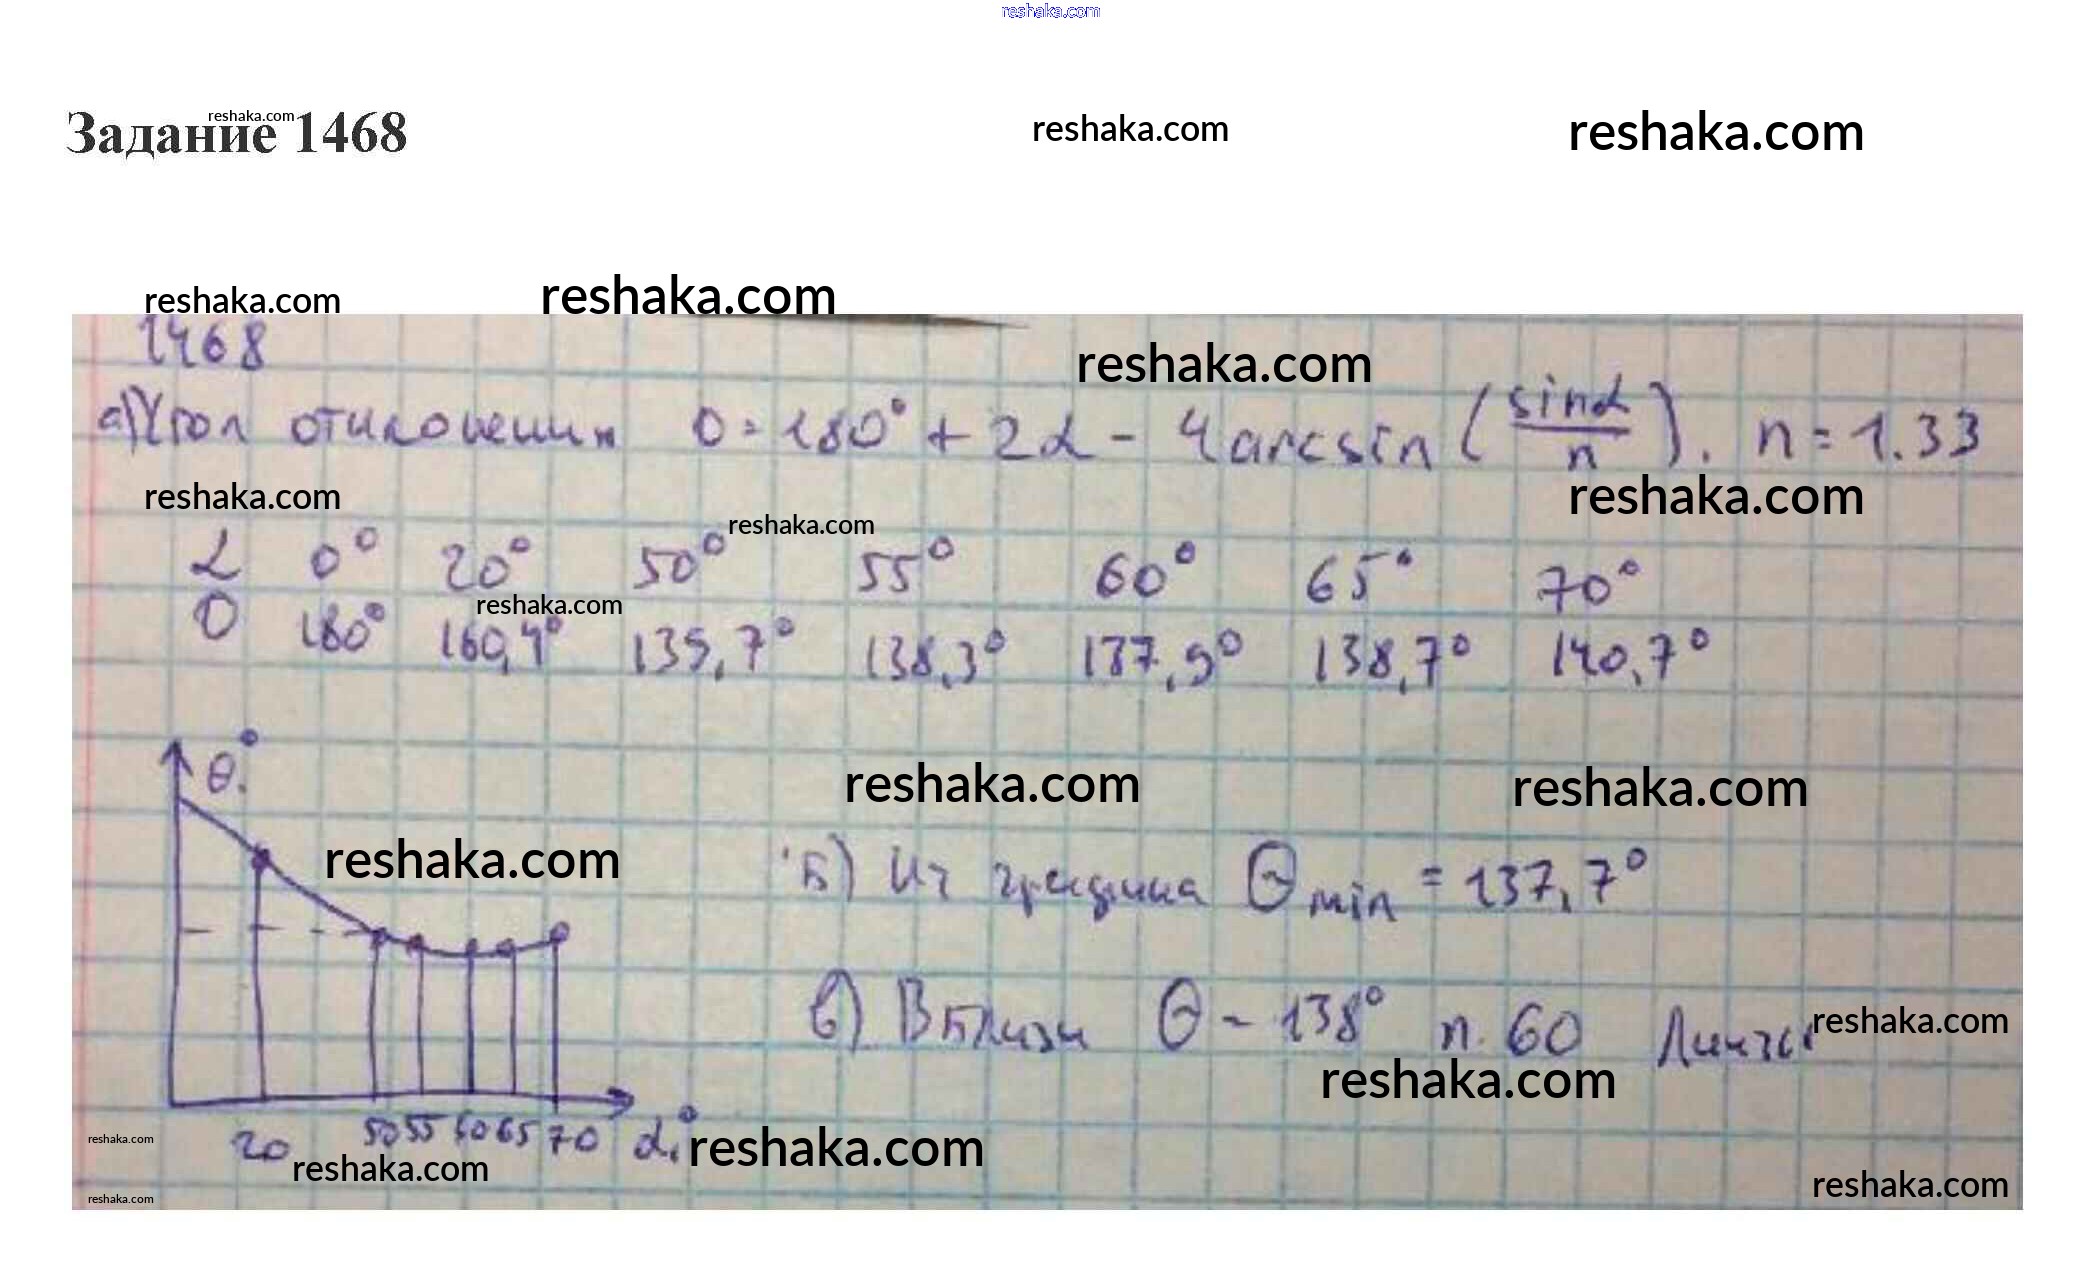 reshaka.com
Задание 1468
reshaka.com
reshaka.com reshaka.com
reshaka.com reshaka.com
1468
reshaka.com
а) Угол отклонения θ = 180° + 2α - 4 arcsin (sinα/n). n = 1.33
reshaka.com reshaka.com
reshaka.com
α 0° 20° 50° 55° 60° 65° 70°
reshaka.com
θ 180° 160,4° 139,7° 138,3° 137,9° 138,7° 140,7°
θ,°
reshaka.com reshaka.com
reshaka.com
Б) Из графика θ min = 137,7°
в) Вблизи θ ~ 138° п. 60
reshaka.com
reshaka.com
20 50 55 60 65 70 α,°
reshaka.com
reshaka.com
reshaka.com
reshaka.com
reshaka.com